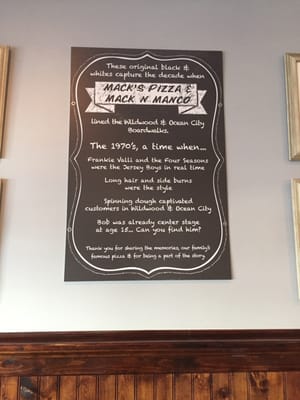 These original black &
whites capture the decade when
MACK'S PIZZA &
MACK N' MANCO
lined the Wildwood & Ocean City
Boardwalks.
The 1970's, a time when...
Frankie Valli and the Four Seasons
were the Jersey Boys in real time
Long hair and side burns
were the style
Spinning dough captivated
customers in Wildwood & Ocean City
Bob was already center stage
at age 15... Can you find him?
Thank you for sharing the memories, our family's
famous pizza & for being a part of the story.